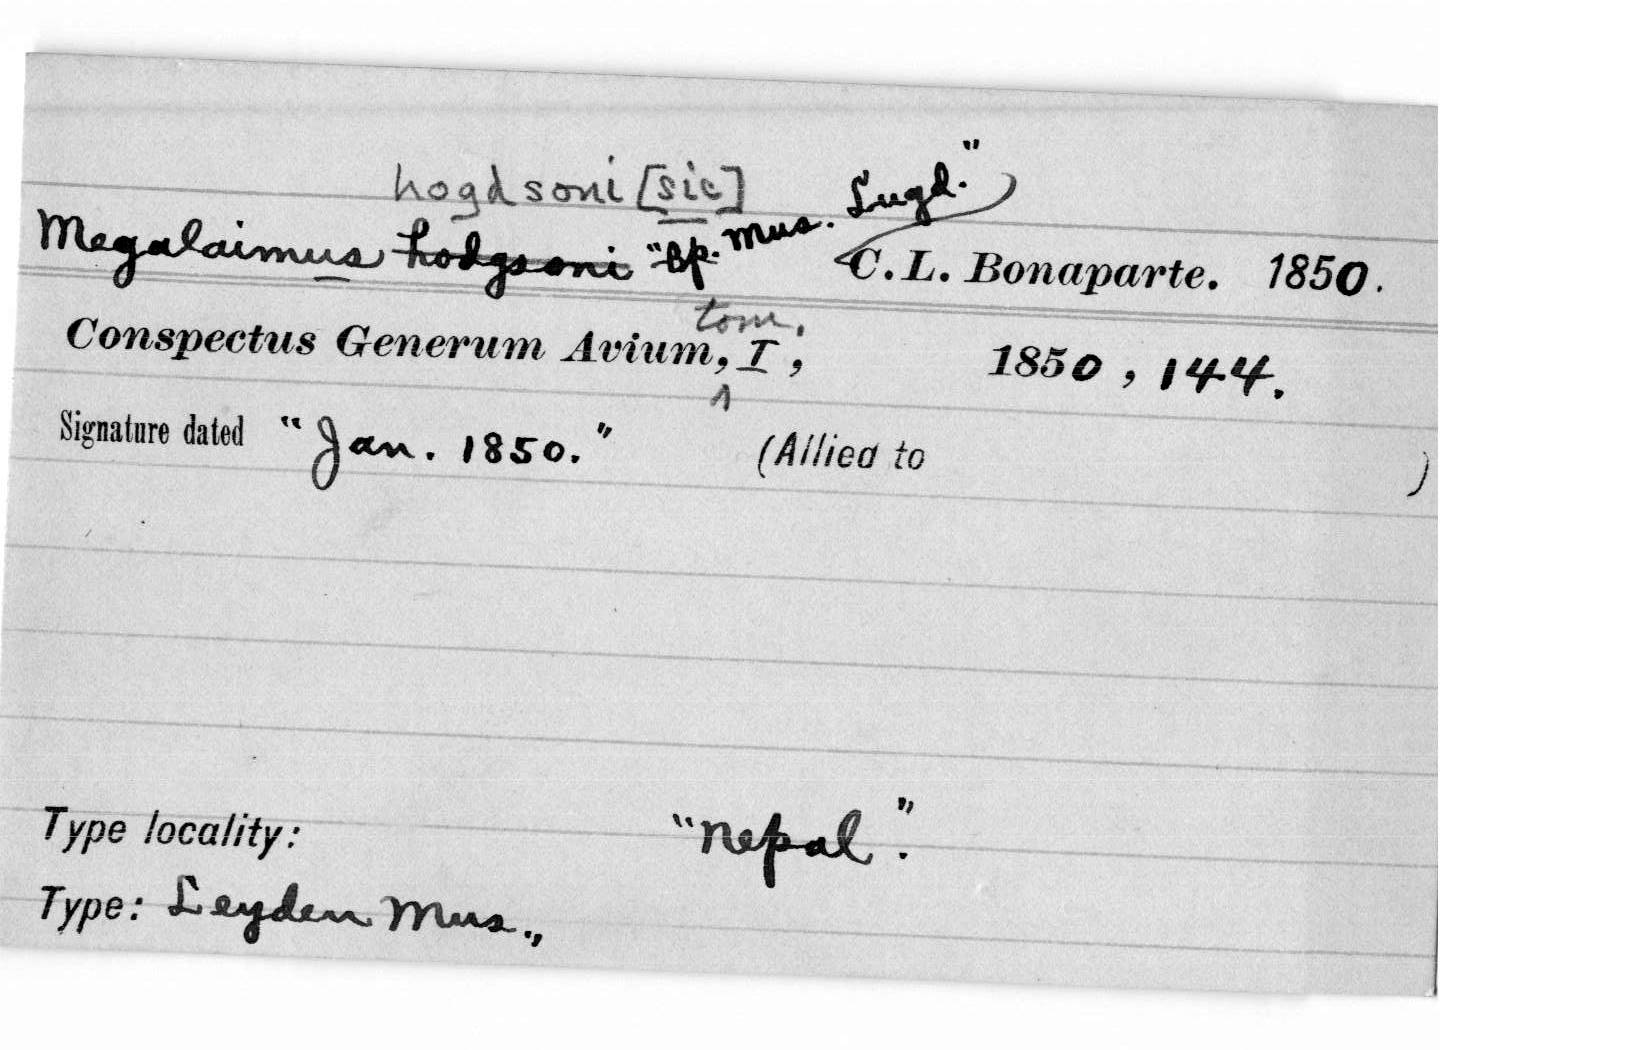 hogdsoni [sic]
Megalaimus hodgsoni "Bp. Mus. Lugd." C. L. Bonaparte. 1850.
tom.
Conspectus Generum Avium, I, 1850, 144.
Signature dated "Jan. 1850." (Allied to )
Type locality: "Nepal".
Type: Leyden Mus.,